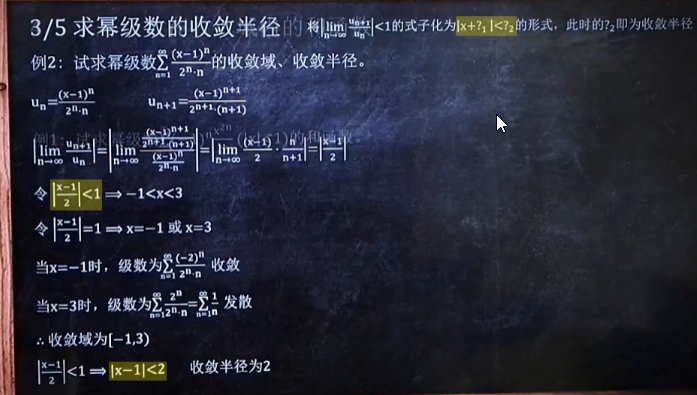 3/5 求幂级数的收敛半径 将|lim n→∞ uₙ₊₁/uₙ|<1的式子化为|x+?₁|<?₂的形式，此时的?₂即为收敛半径
例2：试求幂级数∑_{n=1}^{∞} (x−1)ⁿ/(2ⁿ·n) 的收敛域、收敛半径。
uₙ=(x−1)ⁿ/(2ⁿ·n) uₙ₊₁=(x−1)ⁿ⁺¹/(2ⁿ⁺¹·(n+1))
|lim n→∞ uₙ₊₁/uₙ|=|lim n→∞ ((x−1)ⁿ⁺¹/(2ⁿ⁺¹·(n+1)))/((x−1)ⁿ/(2ⁿ·n))|=|lim n→∞ (x−1)/2 · n/(n+1)|=|(x−1)/2|
令 |(x−1)/2|<1 ⟹ −1<x<3
令 |(x−1)/2|=1 ⟹ x=−1 或 x=3
当x=−1时，级数为∑_{n=1}^{∞} (−2)ⁿ/(2ⁿ·n) 收敛
当x=3时，级数为∑_{n=1}^{∞} 2ⁿ/(2ⁿ·n)=∑_{n=1}^{∞} 1/n 发散
∴收敛域为[−1,3)
|(x−1)/2|<1 ⟹ |x−1|<2 收敛半径为2